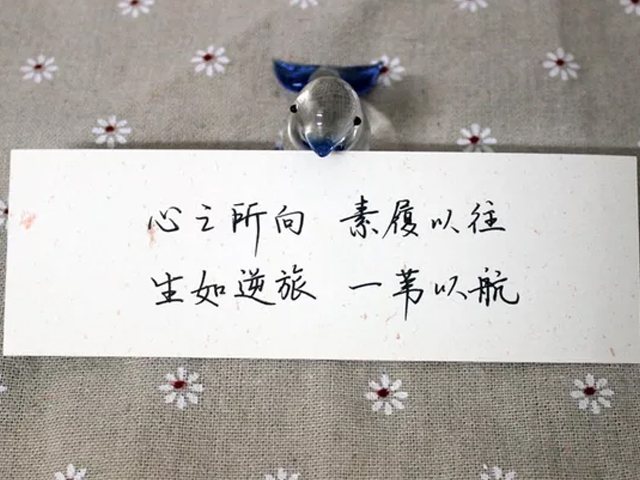 心之所向 素履以往
生如逆旅 一苇以航